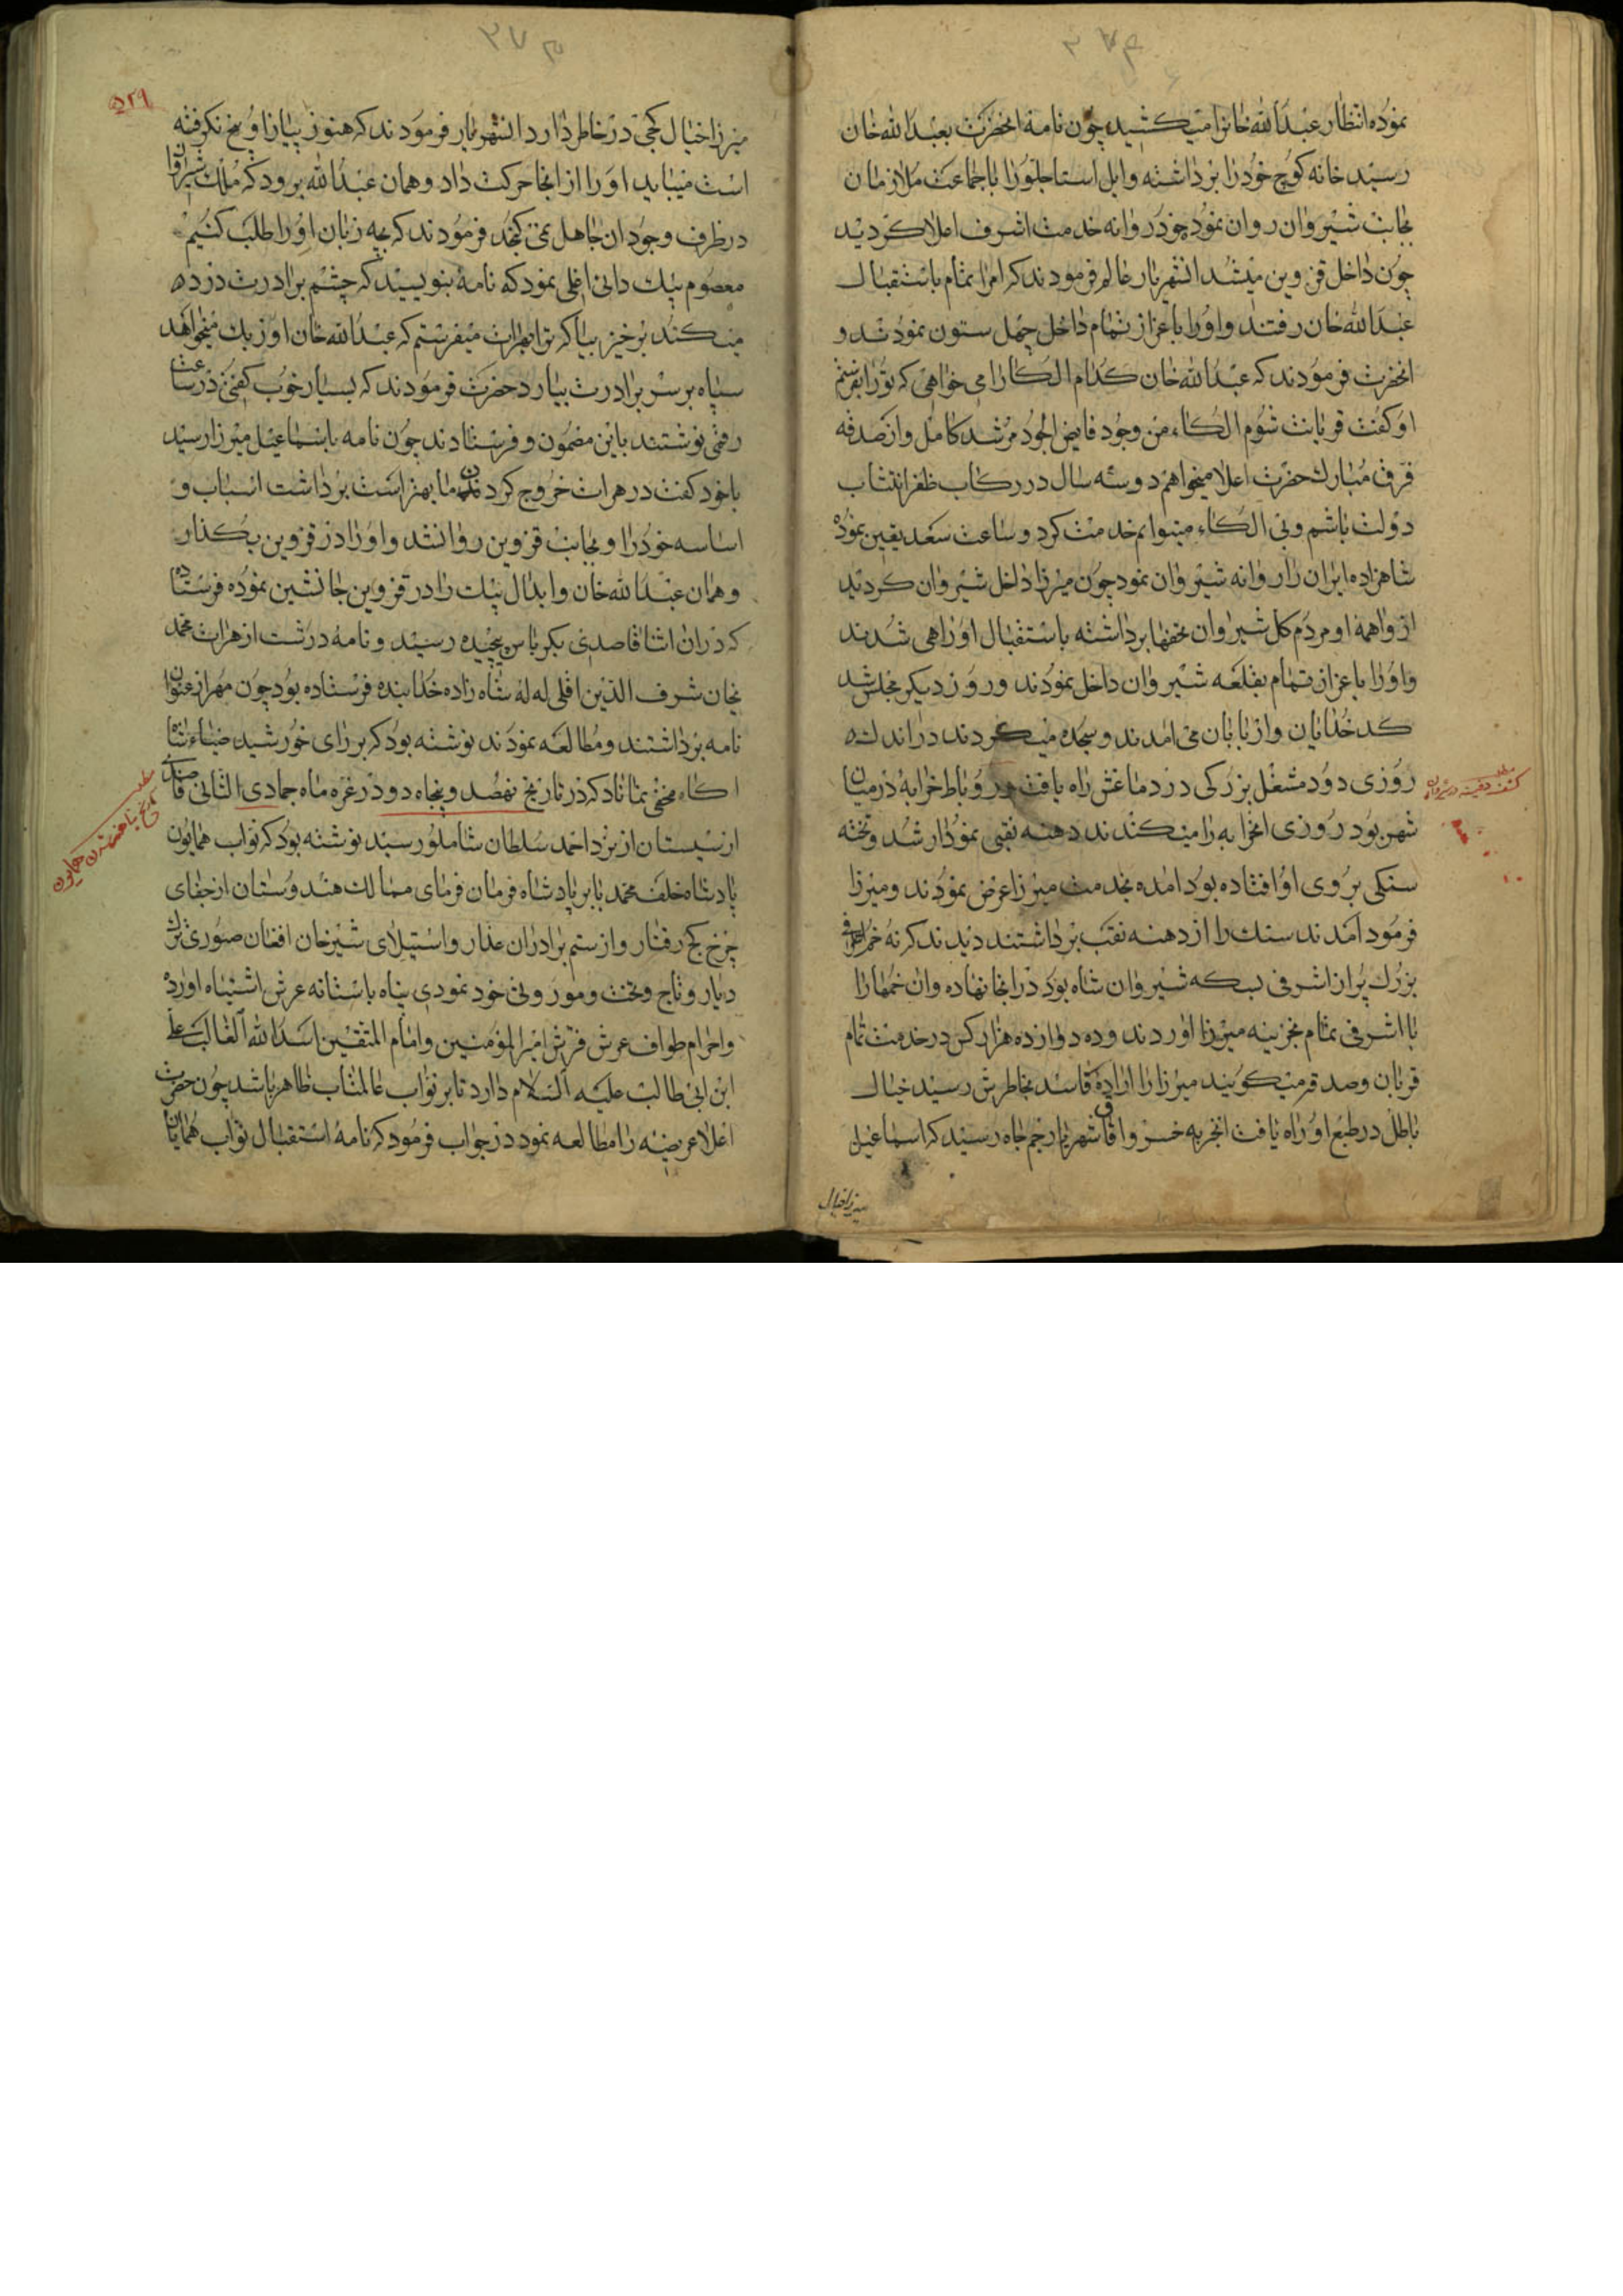 ۳۷۴
نموده انتظار عبدالله خانرا میکشید چون نامهٔ انحضرت بعبدالله خان
رسید خانه کوچ خودرا برداشته و ایل استاجلورا با جماعت ملازمان
بجانب شیروان روان نمود خود روانه خدمت اشرف اعلا کردید
چون داخل قزوین میشد انشهریار عالم فرمودند که امرا تمام باستقبال
عبدالله خان رفتند و اورا باعزاز تمام داخل چهل ستون نمودند و
انحضرت فرمودند که عبدالله خان کدام الکارا می خواهی که تورا بفرستم
او کفت قربانت شوم الکاء من وجود فایض الجود مرشد کامل و از صدقه
فرق مبارك حضرت اعلا میخواهم دو سه سال در رکاب ظفر انتساب
دولت باشم و بی الکاء میتوانم خدمت کرد و ساعت سعد یقین نموده
شاهزاده ایران را روانه شیروان نمود چون میرزا داخل شیروان کردید
از واهمهٔ او مردم کل شیروان تحفها برداشته باستقبال او راهی شدند
و اورا باعزاز تمام بقلعه شیروان داخل نمودند و روز دیکر مجلس شد
کدخدایان و اربابان می امدند و سجده میکردند در اندك
روزی دود مشعل بزرکی در دماغش راه یافت و رباط خرابهٔ در میان
شهر بود روزی انخرابه را میکندند دهنه نقبی نمودار شد و تخته
سنکی بروی او افتاده بود امده بخدمت میرزا عرض نمودند و میرزا
فرمود امدند سنك را از دهنه نقب برداشتند دیدند که نه خم
بزرك پر از اشرفی بسکه شیروان شاه بود در انجا نهاده و ان خمهارا
با اشرفی تمام بخزینه میرزا اوردند و ده دوازده هزار کس در خدمت تمام
قربان و صدقه میکویند میرزا را ارادهٔ فاسد بخاطرش رسید خیال
باطل در طبع او راه یافت انخبر به خسرو افاق شهریار جم جاه رسید که اسماعیل
میرزا خیال
کنف دفینه در شیروان
۳۷۵
۵۲۹
میرزا خیال کجی در خاطر دارد انشهریار فرمودند که هنوز پیاز او بیخ نکرفته
است میباید او را از انجا حرکت داد و همان عبدالله برود که ملك شیروان
در ظرف وجود ان جاهل نمی کنجد فرمودند که بچه زبان اورا طلب کنیم
معصوم بیك داغی اغلی نمود که نامه بنویسید که چشم برادرت درد
میکند برخیز بیا که ترا بهرات میفرستم که عبدالله خان اوزبك میخواهد
سپاه بر سر برادرت بیارد حضرت فرمودند که بسیار خوب کفتی در ساعت
رقمی نوشتند باین مضمون و فرستادند چون نامه باسماعیل میرزا رسید
با خود کفت در هرات خروج کردن ما بهتر است برداشت اسباب و
اساسه خودرا و بجانب قزوین روانشد و اورا در قزوین بکذار
و همان عبدالله خان و ابدال بیك را در قزوین جانشین نموده فرستاده
که در ان اثنا قاصدی بکرباس پیچیده رسید و نامه درشت از هرات محمد
خان شرف الدین اقلی له له شاه زاده خدابنده فرستاده بود چون مهر از عنوان
نامه برداشتند و مطالعه نمودند نوشته بود که بر رای خورشید ضیاء شاه
اکاه مخفی نماناد که در تاریخ نهصد و پنجاه دو در غره ماه جمادی الثانی قاصدی
از سیستان از نزد احمد سلطان شاملو رسید نوشته بود که نواب همایون
پادشاه خلف محمد بابر پادشاه فرمان فرمای ممالك هندوستان از جفای
چرخ کج رفتار و از ستم برادران عذار و استیلای شیرخان افغان صوری ترك
دیار و تاج و تخت و موروثی خود نموده پناه باستانه عرش اشتباه اورده
و احرام طواف عرش فرش امیر المؤمنین و امام المتقین اسد الله الغالب علی
ابن ابی طالب علیه السلام دارد تا بر نواب عالمتاب ظاهر باشد چون حضرت
اعلا عریضه را مطالعه نمود در جواب فرمود که نامهٔ استقبال نواب همایان